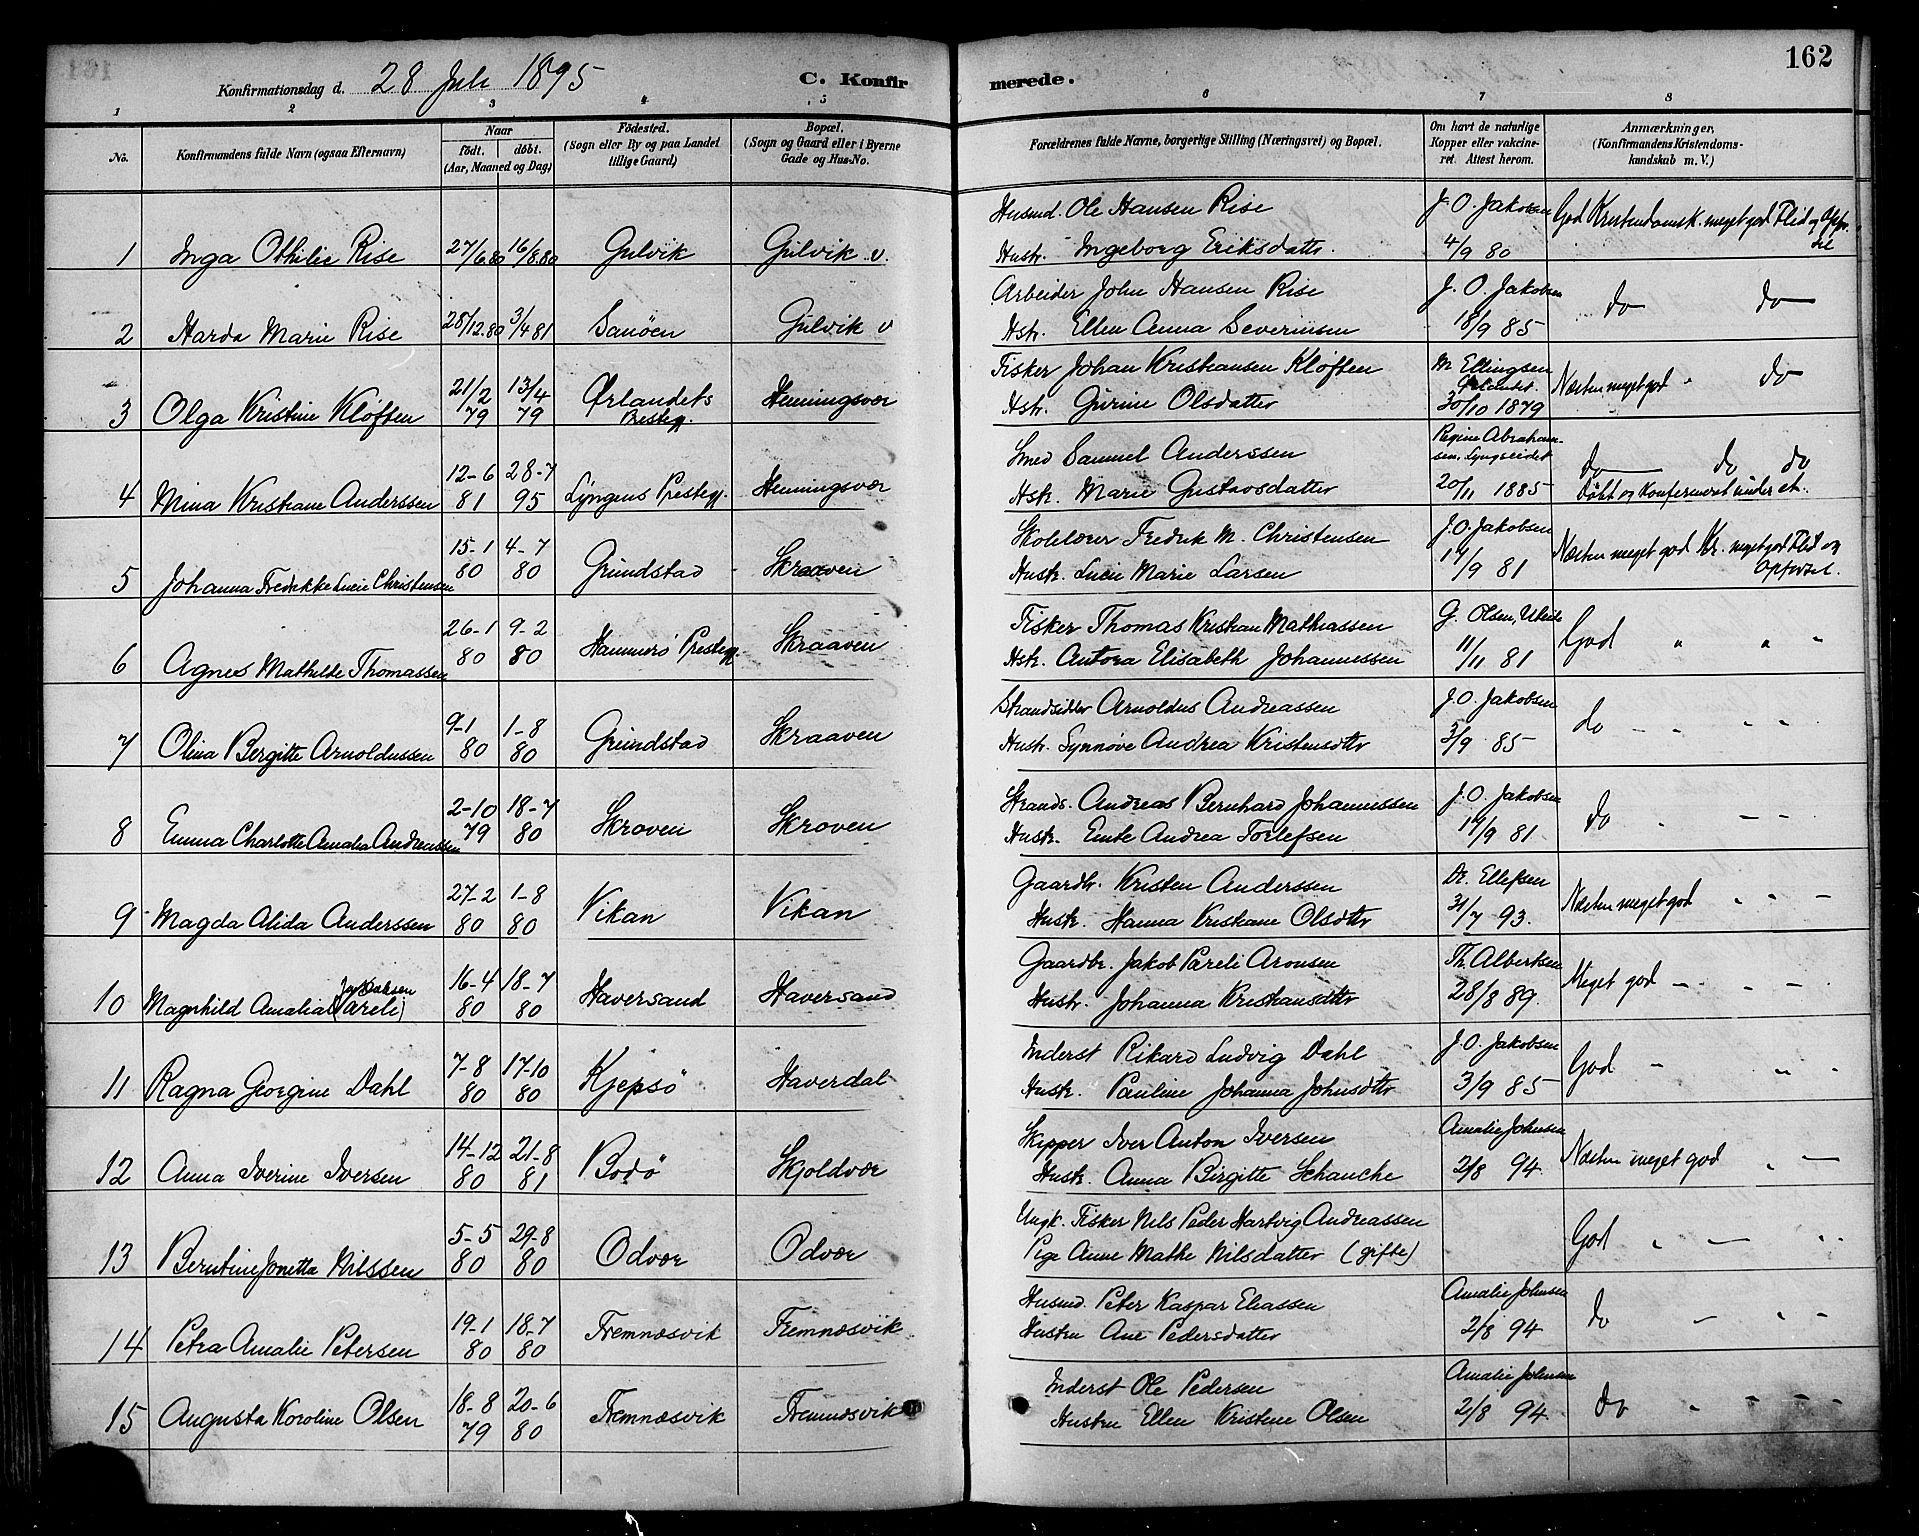 162
Konfirmationsdag d. 28 Juli 1895 C. Konfirmerede.
1 2 3 4 5 6 7 8
No. Konfirmandens fulde Navn (ogsaa Efternavn) Naar födt. döbt. (Aar, Maaned og Dag) Födested. (Sogn eller By og paa Landet tillige Gaard) Bopæl. (Sogn og Gaard eller i Byerne Gade og Hus-No.) Forældrenes fulde Navne, borgerlige Stilling (Næringsvei) og Bopæl. Om havt de naturlige Kopper eller vakcineret. Attest herom. Anmærkninger, (Konfirmandens Kristendomskundskab m. V.)
Husmd. Ole Hansen Rise J. O. Jakobsen God Kristendomsk. meget god Flid og Opførsel
1 Inga Othilie Rise 27/6.80 16/8.80 Gulvik Gulvik v. Hustr. Ingeborg Eriksdattr. 4/9 80
Arbeider John Hansen Rise J. O. Jakobsen do do
2 Harda Marie Rise 28/12.80 3/4 81 Sanöen Gulvik v Hstr. Ellen Anna Severinsen 18/9 85
Fisker Johan Kristiansen Kløften M. Ellingsen Ørlandet
3 Olga Kristine Kløften 21/2 79 13/4 79 Ørlandets Prestegj. Henningsvær Hstr. Gurine Olsdatter 30/10 1879 Næsten meget god " do
Smed Samuel Anderssen Regine Abrahamsen, Lyngseidet do do do
4 Mina Kristiane Anderssen 12-6 81 28-7 95 Lyngens Prestegj. Henningsvær Hstr. Marie Gustavsdatter 20/11 1885 Døbt og Konfirmeret under et.
Skolelærer Fredrik M. Christensen J. O. Jakobsen Næsten meget god Kr. meget god Flid og Opførsel.
5 Johanna Fredrikke Lucie Christensen 15-1 80 4-7 80 Grundstad Skraaven Hustr. Lucie Marie Larsen 17/9 81
Fisker Thomas Kristian Mathiassen G. Olsen,
6 Agnes Mathilde Thomassen 26-1 80 9-2 80 Hammerø Prestegj. Skraaven Hstr. Antora Elisabeth Johannessen 11/11 81 God " " "
Strandsidder Arnoldus Andreassen J. O. Jakobsen
7 Olina Bergitte Arnoldussen 9-1 80 1-8 80 Grundstad Skraaven Hustr. Synnøve Andrea Kristensdtr 3/9 85 do
Strands. Andreas Bernhard Johannessen J. O. Jakobsen
8 Emma Charlotte Amalia Andreassen 2-10 79 18-7 80 Skroven Skroven Hustr. Emte Andrea Torlefsen 17/9 81 do
Gaardbr. Kristen Anderssen Dr. Ellefsen
9 Magda Alida Anderssen 27-2 80 1-8 80 Vikan Vikan Hustr. Hanna Kristiane Olsdtr 31/7 93. Næsten meget god
Gaardbr. Jakob Pareli Aronsen Th. Albertsen
10 Magnhild Amalia Jakobsen (Pareli) 16-4 80 18-7 80 Haversand Haversand Hustr. Johanna Kristiansdtr 28/8 89. Meget god
Inderst Rikard Ludvig Dahl J. O. Jakobsen
11 Ragna Georgine Dahl 7-8 80 17-10 80 Kjepsö Haverdal Hustr. Pauline Johanna Johnsdtr 3/9 85 God
Skipper Iver Anton Iversen Amalie Johnsen
12 Anna Iverine Iversen 14-12 80 21-8 81 Bodö Skjoldvær Hustr. Anna Birgitte Schanche 2/8 94. Næsten meget god
Ungk. Fisker Nils Peder Hartvig Andreassen
13 Berntine Jonetta Nilssen 5-5 80 29-8 80 Odvær Odvær Pige Anne Mathe Nilsdatter (gifte) God
Husmd. Peter Kaspar Eliassen Amalie Johnsen
14 Petra Amalie Petersen 19-1 80 18-7 80 Fremnæsvik Fremnæsvik Hustru Ane Pedersdatter 2/8 94 do
Inderst Ole Pedersen Amalie Johnsen
15 Augusta Karoline Olsen 18-8 79 20-6 80 Fremnæsvik Fremnæsvik Hustru Ellen Kristine Olsen 2/8 94. do